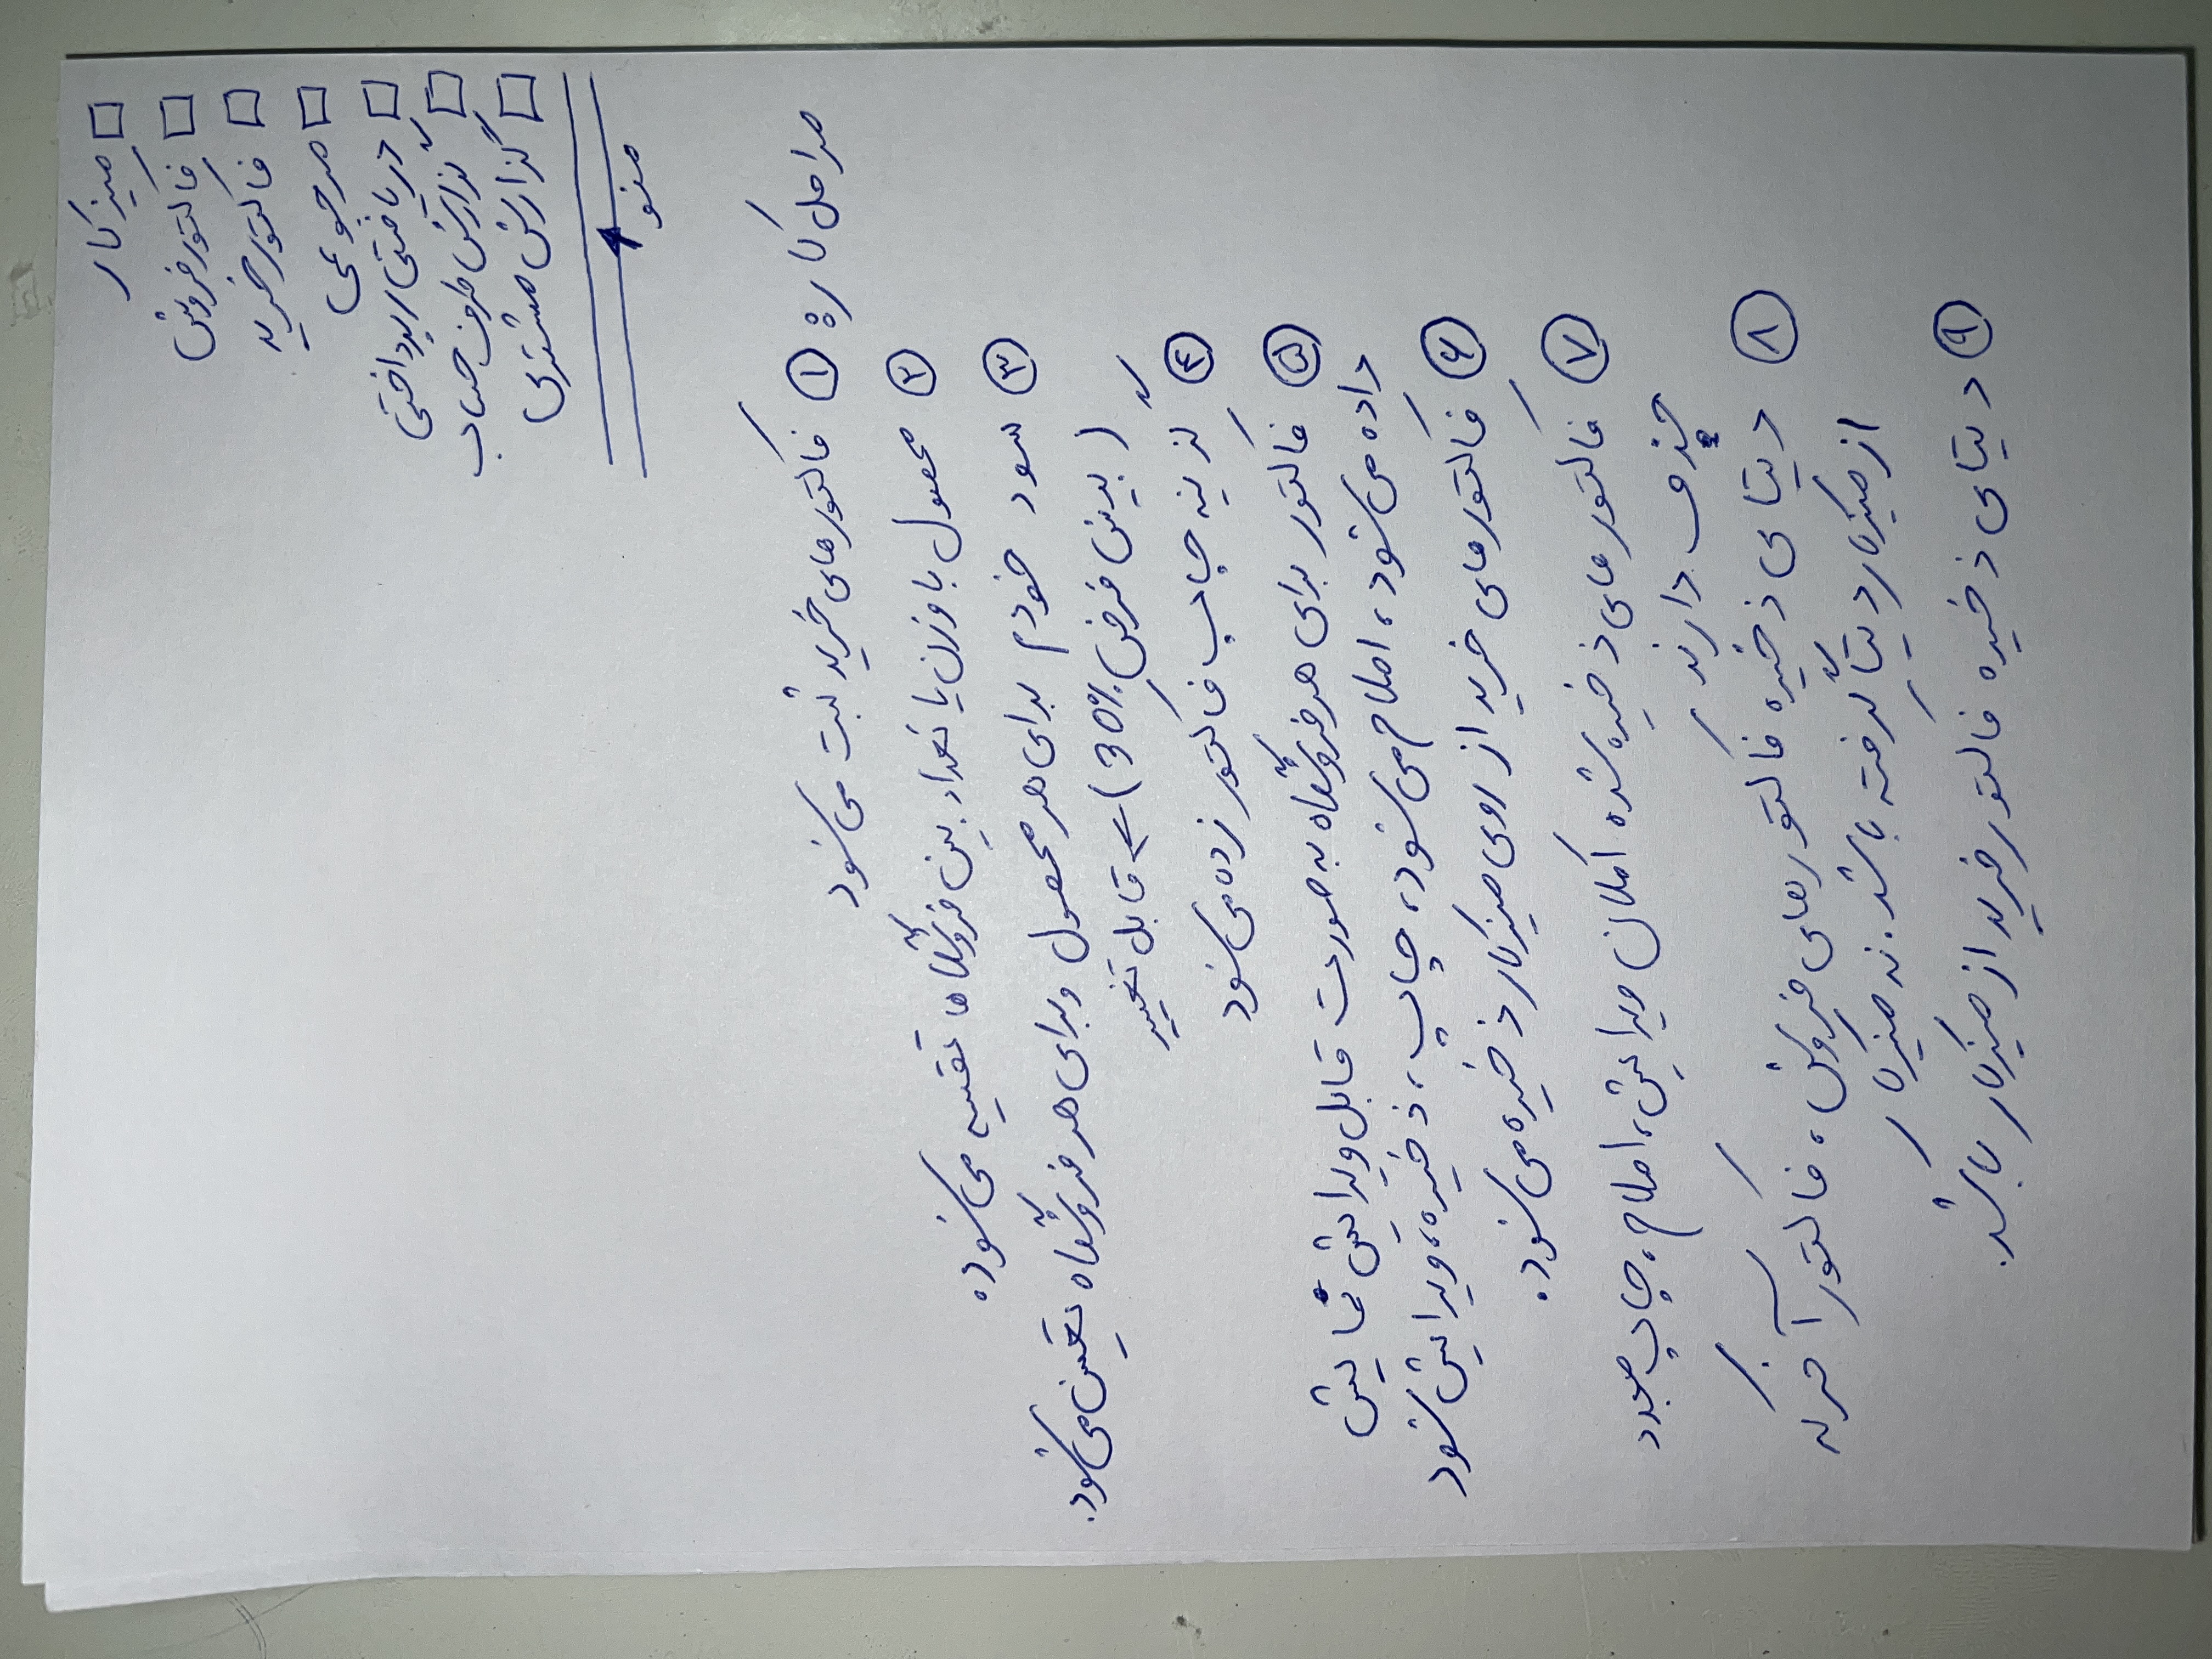 میزکار
فاکتور فروش
فاکتور خرید
مرجوعی
دریافتی/پرداختی
گزارش طرف حساب
گزارش مشتری
منو
مراحل کار:
۱ فاکتورهای خرید ثبت می‌شود
۲ محصول با وزن یا تعداد بین فروشگاه‌ها تقسیم می‌شود.
۳ سود خودم برای هر محصول و برای هر فروشگاه تعیین می‌شود.
(پیش فرض 30%) ← قابل تغییر
۴ گزینه چاپ فاکتور زده می‌شود
۵ فاکتور برای هر فروشگاه به صورت قابل ویرایش نمایش
داده می‌شود، اصلاح می‌شود، چاپ، ذخیره، ویرایش شود
۶ فاکتورهای خرید از روی میزکار ذخیره می‌شود.
۷ فاکتورهای ذخیره شده امکان ویرایش، اصلاح، چاپ مجدد
حذف دارند
۸ دیتای ذخیره فاکتورهای فروش، فاکتور آخر که
از میزکار دیتا گرفته باشد. نه میزکار
۹ دیتای ذخیره فاکتور خرید از میزکار باشد.